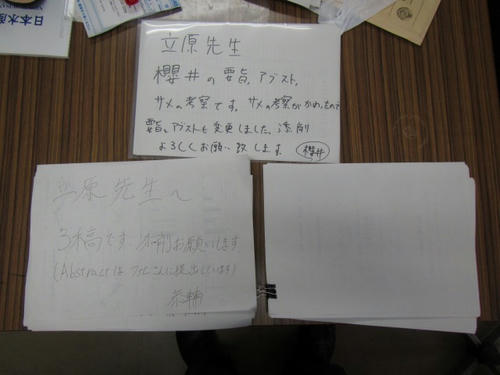 日本水産
立原先生
櫻井の要旨,アブスト,
サメの考察です。サメの考察がかわったので
要旨,アブストも変更しました。添削
よろしくお願い致します
櫻井
立原先生へ
3稿です 添削お願いします
(Abstractは
提出しています)